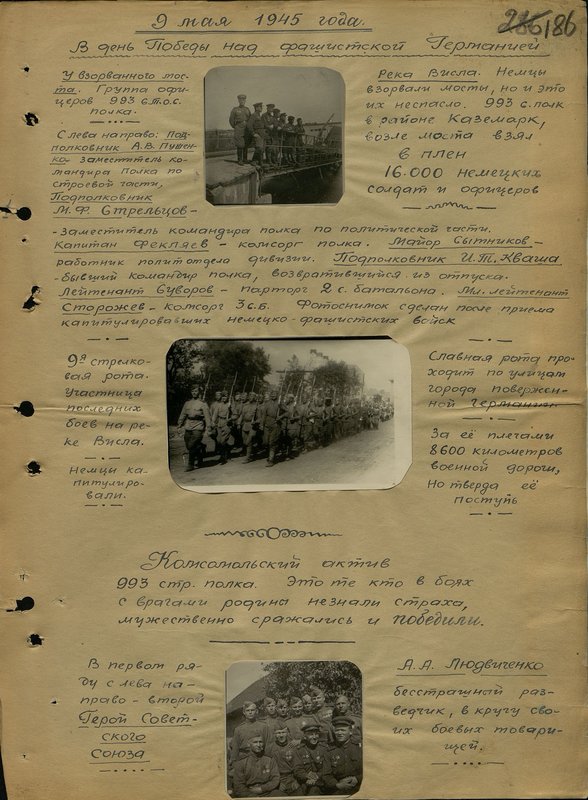 9 мая 1945 года.
286 186
В день Победы над фашистской Германией
У взорванного мос-
та. Группа офи-
церов 993 с.п.
полка.
Слева направо: Под-
полковник А.В. Пушен-
ко заместитель ко-
мандира полка по
строевой части,
Подполковник
М.Ф. Стрельцов-
Река Висла. Немцы
взорвали мосты, но и это
их неспасло. 993 с.полк
в районе Каземарк,
возле моста взял
в плен
16.000 немецких
солдат и офицеров
-заместитель командира полка по политической части.
Капитан Фекляев - комсорг полка. Майор Сытников-
работник политотдела дивизии. Подполковник И.Т. Кваша
-бывший командир полка, возвратившийся из отпуска.
Лейтенант Суворов - парторг 2 с. батальона. Мл. лейтенант
Сторожев - комсорг 3 с.б. Фотоснимок сделан после приема
капитулировавших немецко-фашистских войск
9я стрелко-
вая рота.
Участница
последних
боев на ре-
ке Висла.
Немцы ка-
питулиро-
вали.
Славная рота про-
ходит по улицам
города повержен-
ной Германии.
За её плечами
8600 километров
военной дороги,
Но тверда её
поступь
Комсомольский актив
993 стр. полка. Это те кто в боях
с врагами родина незнали страха,
мужественно сражались и победили.
В первом ря-
ду слева на-
право - второй
Герой Совет-
ского
Союза
А.А. Людвиченко
бесстрашный раз-
ведчик, в кругу сво-
их боевых товари-
щей.